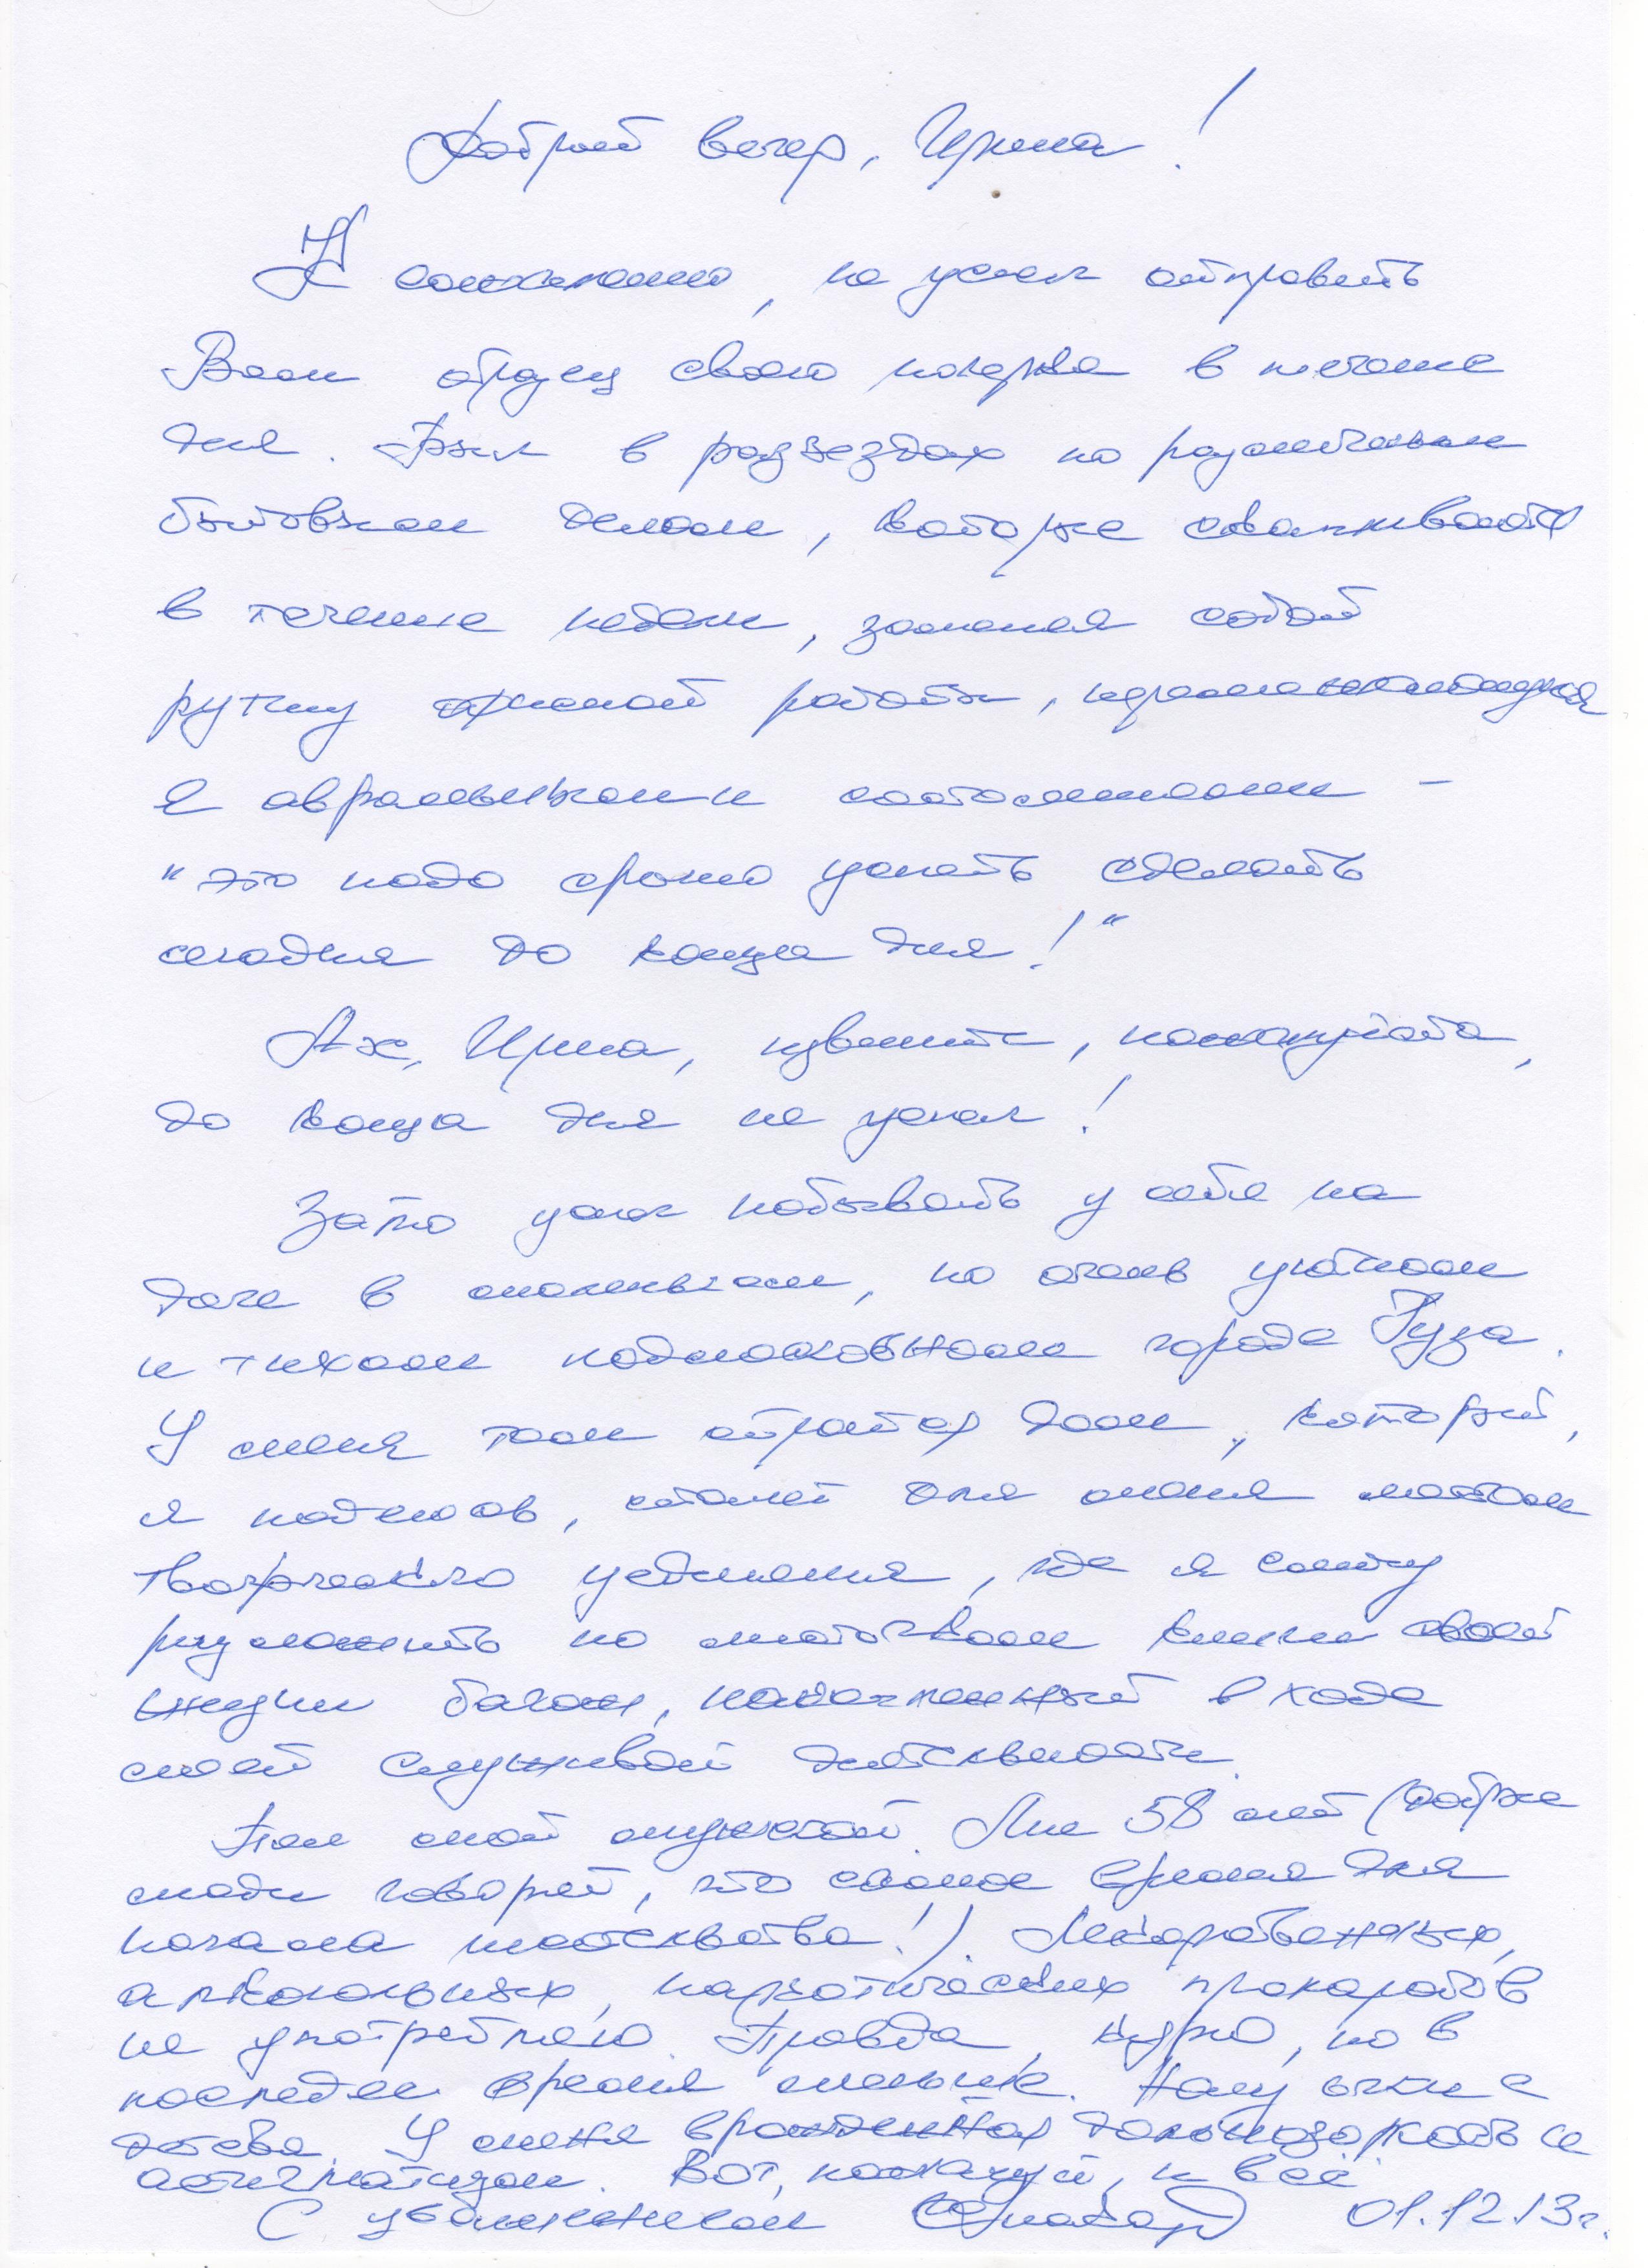 Добрый вечер, Ирина!
К сожалению, не успел отправить
Вам образец своего почерка в течение
дня. Был в разъездах по различным
бытовым делам, которые сваливаются
в течение недели, заменяя собой
рутину основной работы,
я авральными состояниями -
"это надо срочно успеть сделать
сегодня до конца дня!"
Ах, Ирина, извините, пожалуйста,
до конца дня не успел!
Зато успел побывать у себя на
даче в маленьком, но очень уютном
и тихом подмосковном городе Руза.
У меня там строится дом, который,
я надеюсь, станет для меня местом
творческого уединения, где я смогу
разложить по листочкам книги своей
жизни багаж, накопленный в ходе
моей служебной деятельности.
Пол мой мужской. Мне 58 лет (добрые
люди говорят, что самое время для
начала творчества!). Лекарственных,
алкогольных, наркотических препаратов
не употребляю. Правда, курю, но в
последнее время меньше. Ношу очки с
детства. У меня врожденная дальнозоркость и
астигматизм. Вот, пожалуй, и всё.
С уважением 01.12.13г.